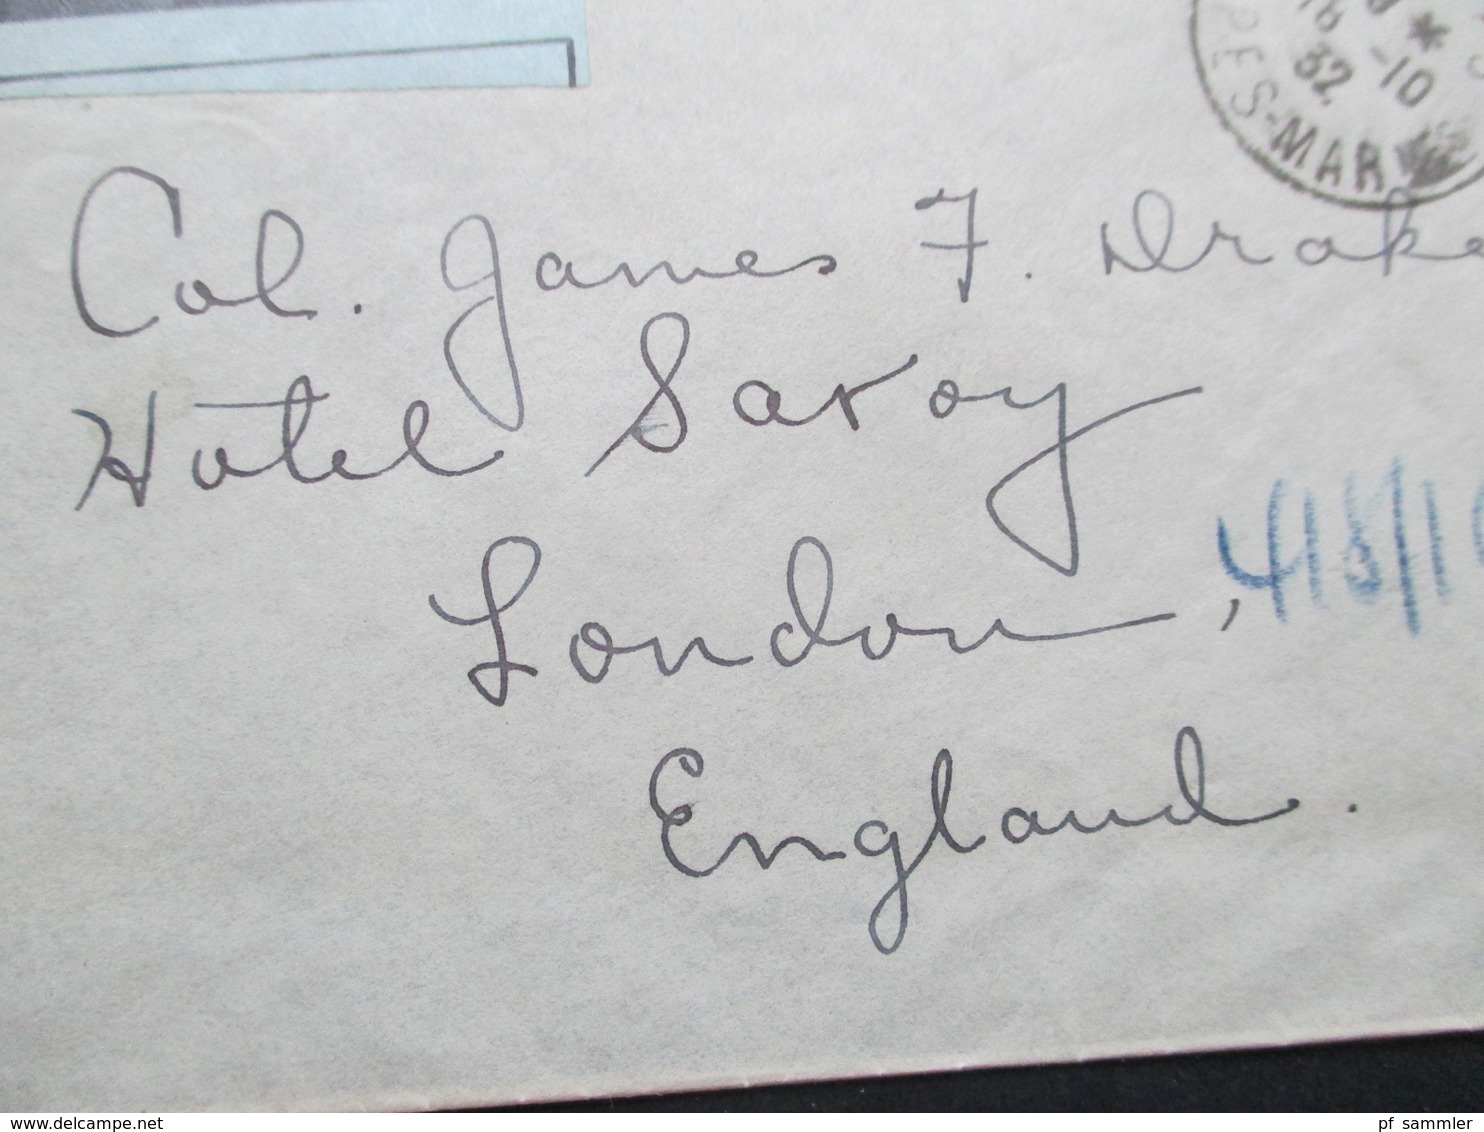 32 -10
PES-MAR
Col. James F. Drake
Hotel Savoy
London,
England.
delcampe.net
pf_sammler